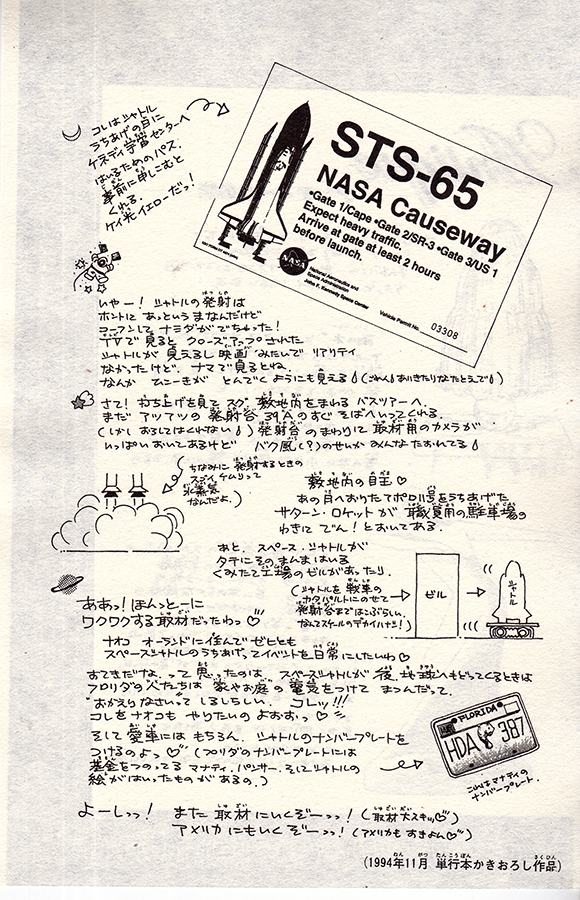 コレはシャトル
うちあげの日に
ケネディ宇宙センターへ
はいるためのパス.
事前に申しこむと
くれる.
ケイ光イエローだっ!
STS-65
NASA Causeway
•Gate 1/Cape •Gate 2/SR-3 •Gate 3/US 1
Expect heavy traffic.
Arrive at gate at least 2 hours
before launch.
NASA
National Aeronautics and
Space Administration
John F. Kennedy Space Center
Vehicle Permit No. 03308
いやー! シャトルの発射は
ホントに あっというまなんだけど
コーフンして ナミダがでちゃった!
TVで見ると クローズアップされた
シャトルが 見えるし映画みたいで リアリティ
なかったけど、ナマで見るとね.
なんか ひこーきが とんでくようにも見える(ごめんありきたりなたとえで)
さて! 打ち上げを見て スグ 敷地内をまわる バスツアーへ.
まだ アツアツの 発射台 39Aのすぐ そばへいってくれる.
(しかしおろしてはくれない) 発射台のまわりに 取材用のカメラが
いっぱいおいてあるけど バク風(?)のせいか みんなたおれてる
ちなみに 発射するときの
スゴイ ケムリって
水蒸気
なんだよ.)
敷地内の目玉♡
あの月へおりたてアポロ11号をうちあげた
サターン・ロケットが 職員用の駐車場の
わきに でん! とおいてある.
あと、スペース・シャトルが
タテにそのまんまはいる
くみたて工場のビルがあったり.
(シャトルを 戦車の
カタパルトにのせて
発射台まではこぶらしい.
なんてスケールのデカイハナシ!)
ビル
シャトル
ああっ! ほんっとーに
ワクワクする取材だったわっ♡
ナオコ オーランドに住んで ゼヒとも
スペースシャトルのうちあげってイベントを日常にしたいわ♡
すてきだな、って 思ったのは スペースシャトルが 後、地球へもどってくるときは
フロリダの人たちは 家やお庭の 電気をつけて まつんだって.
“おかえりなさい”って しるしらしい. コレッ!!!
コレをナオコも やりたいの よおおっ♡
そして 愛車には もちろん、シャトルのナンバープレートを
つけるのよっ♡ (フロリダのナンバープレートには
基金をつのってる マナティ、パンサー、そしてシャトルの
絵がはいったものがあるの.)
FLORIDA
HDA 387
これはマナティの
ナンバープレート.
よーしっっ! また 取材にいくぞーっっ! (取材大スキッ♡)
アメリカにもいくぞーっっ! (アメリカも すきよん♡)
(1994年11月 単行本かきおろし作品)